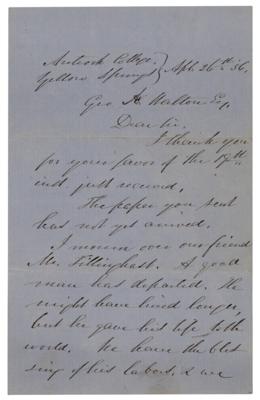 Antioch College,
Yellow Springs } Apl. 26th 56,
Geo A. Walton Esq.
Dear Sir.
I thank you
for your favor of the 17th
inst. just received.
The paper you sent
has not yet arrived.
I mourn over our friend
Mr. Tillinghast. A good
man has departed. He
might have lived longer,
but he gave his life to the
world. We have the bles-
sing of his labors, & we